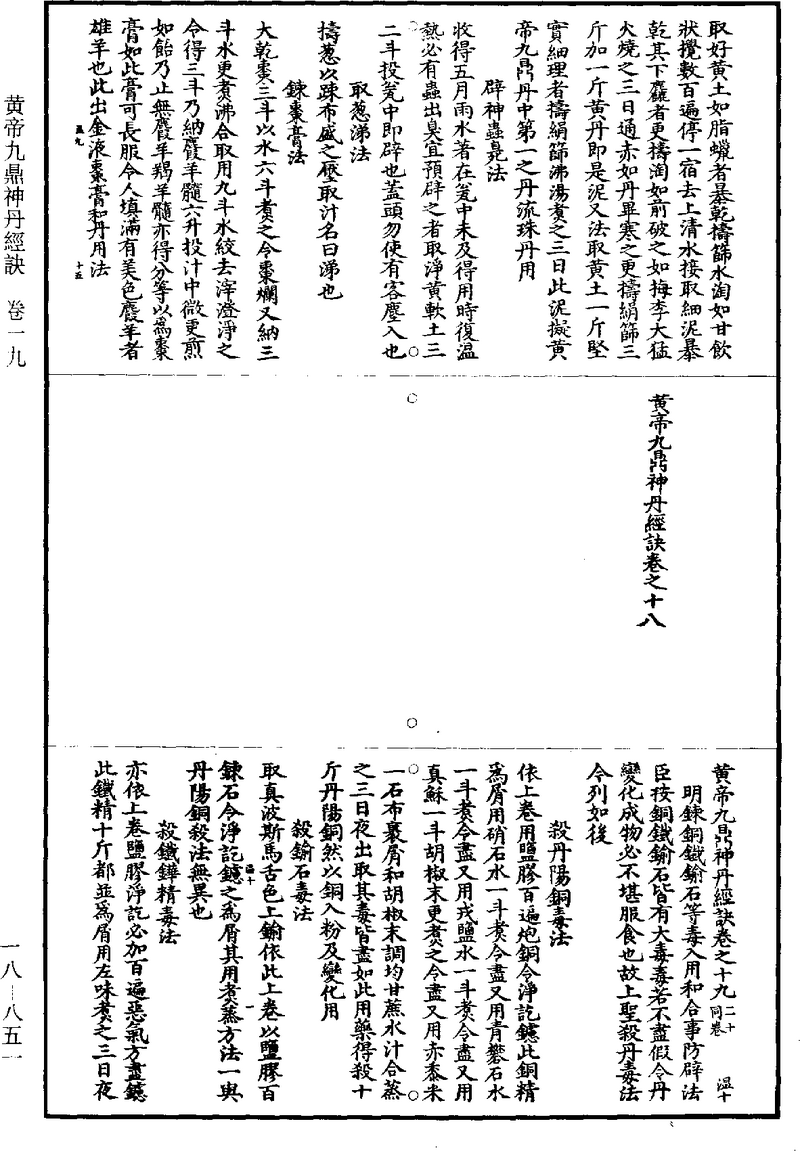 黄帝九鼎神丹經訣 卷一九
一八—八五一
取好黄土如脂蠟者暴乾擣篩水淘如甘飲
狀攪數百遍停一宿去上清水接取細泥暴
乾其下麤者更擣淘如前破之如梅李大猛
火燒之三日通赤如丹畢寒之更擣絹篩三
斤加一斤黄丹即是泥又法取黄土一斤堅
實細理者擣絹篩沸湯煮之三日此泥擬黄
帝九鼎丹中第一之丹流珠丹用
辟神蟲毚法
收得五月雨水著在瓫中未及得用時復温
熱必有蟲出臭宜預辟之者取淨黄軟土三
二斗投瓫中即辟也蓋頭勿使有客塵入也
取葱涕法
擣葱以踈布盛之壓取汁名曰涕也
鍊棗膏法
大乾棗三斗以水六斗煮之令棗爛又納三
斗水更煮沸合取用九斗水絞去滓澄淨之
令得三斗乃納麢羊髓六升投汁中微更煎
如飴乃止無麢羊羯羊髓亦得分等以爲棗
膏如此膏可長服令人填滿有美色麢羊者
雄羊也此出金液棗膏和丹用法
温九
十五
黄帝九鼎神丹經訣卷之十八
黄帝九鼎神丹經訣卷之十九 二十同卷 温十
明鍊銅鐵鍮石等毒入用和合事防辟法
臣按銅鐵鍮石皆有大毒毒若不盡假令丹
變化成物必不堪服食也故上聖殺丹毒法
今列如後
殺丹陽銅毒法
依上卷用鹽膠百遍炮銅令淨訖鑢此銅精
爲屑用硝石水一斗煮令盡又用青礬石水
一斗煮令盡又用戎鹽水一斗煮令盡又用
真酥一斗胡椒末更煮之令盡又用赤黍米
一石布裹屑和胡椒末調均甘蔗水汁合蒸
之三日夜出取其毒皆盡如此用藥得殺十
斤丹陽銅然以銅入粉及變化用
殺鍮石毒法
取真波斯馬舌色上鍮依此上卷以鹽膠百
温十
一
鍊石令淨訖鑢之爲屑其用煮蒸方法一與
丹陽銅殺法無異也
殺鐵鏵精毒法
亦依上卷鹽膠淨訖必加百遍惡氣方盡鑢
此鐵精十斤都並爲屑用左味煮之三日夜